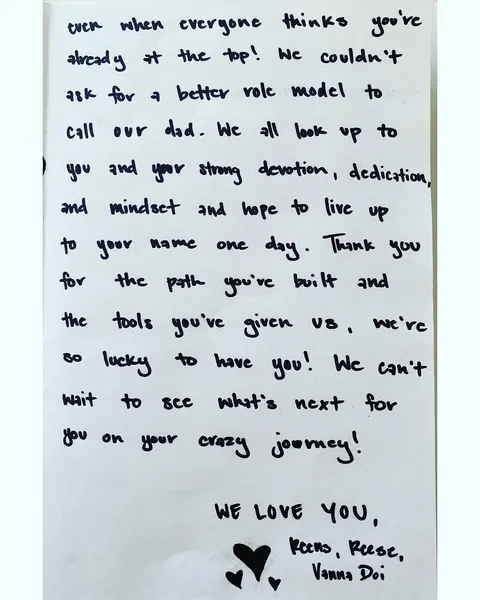 even when everyone thinks you're
already at the top! We couldn't
ask for a better role model to
call our dad. We all look up to
you and your strong devotion, dedication,
and mindset and hope to live up
to your name one day. Thank you
for the path you've built and
the tools you've given us, we're
so lucky to have you! We can't
wait to see what's next for
you on your crazy journey!
WE LOVE YOU,
Reens, Reese,
Vanna Doi